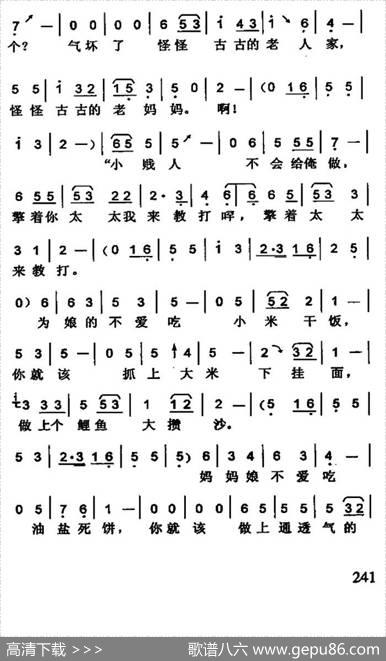 7 - | 0 0 | 0 0 | 6 53 | i 43 | i 6 | 4 - |
个? 气坏了 怪怪 古古的老人家,
5 5 | i 32 | 15 3 | 5 0 | 2 - | (0 16 | 5 5 |
怪怪古古的老妈妈。啊!
i 3 | 2 - ) | 65 5 | 5 - | 0 6 | 5 55 | 7 - |
“小贱人 不会给俺做,
6 55 | 53 22 | 2· 3 | 4 6 | 6 65 | 53 3 |
擎着你太太我来教打哩,擎着太太
3 1 | 2 - | (0 16 | 5 5 | i 3 | 2·3 16 | 2 5 |
来教打。
0) 6 | 6 3 | 5 3 | 5 - | 0 5 | 52 2 | 1 - |
为娘的不爱吃 小米干饭,
5 3 | 5 - | 0 5 | 5 4 | 5 - | 2 32 | 1 - |
你就该 抓上大米 下挂面,
3 33 | 5 53 | 1 12 | 2 - | (5 16 | 5 5 |
做上个鲤鱼大攒沙。
5 3 | 2·3 16 | 5 5 | 5) 6 | 3 4 | 6 3 | 4 - |
妈妈娘不爱吃
0 5 | 7 6 | 1 - | 0 0 | 0 0 | 6 5 | 5 5 | 5 32 |
油盐死饼,你就该 做上通透气的
241
高清下载 >>>
歌谱八六 www.gepu86.com